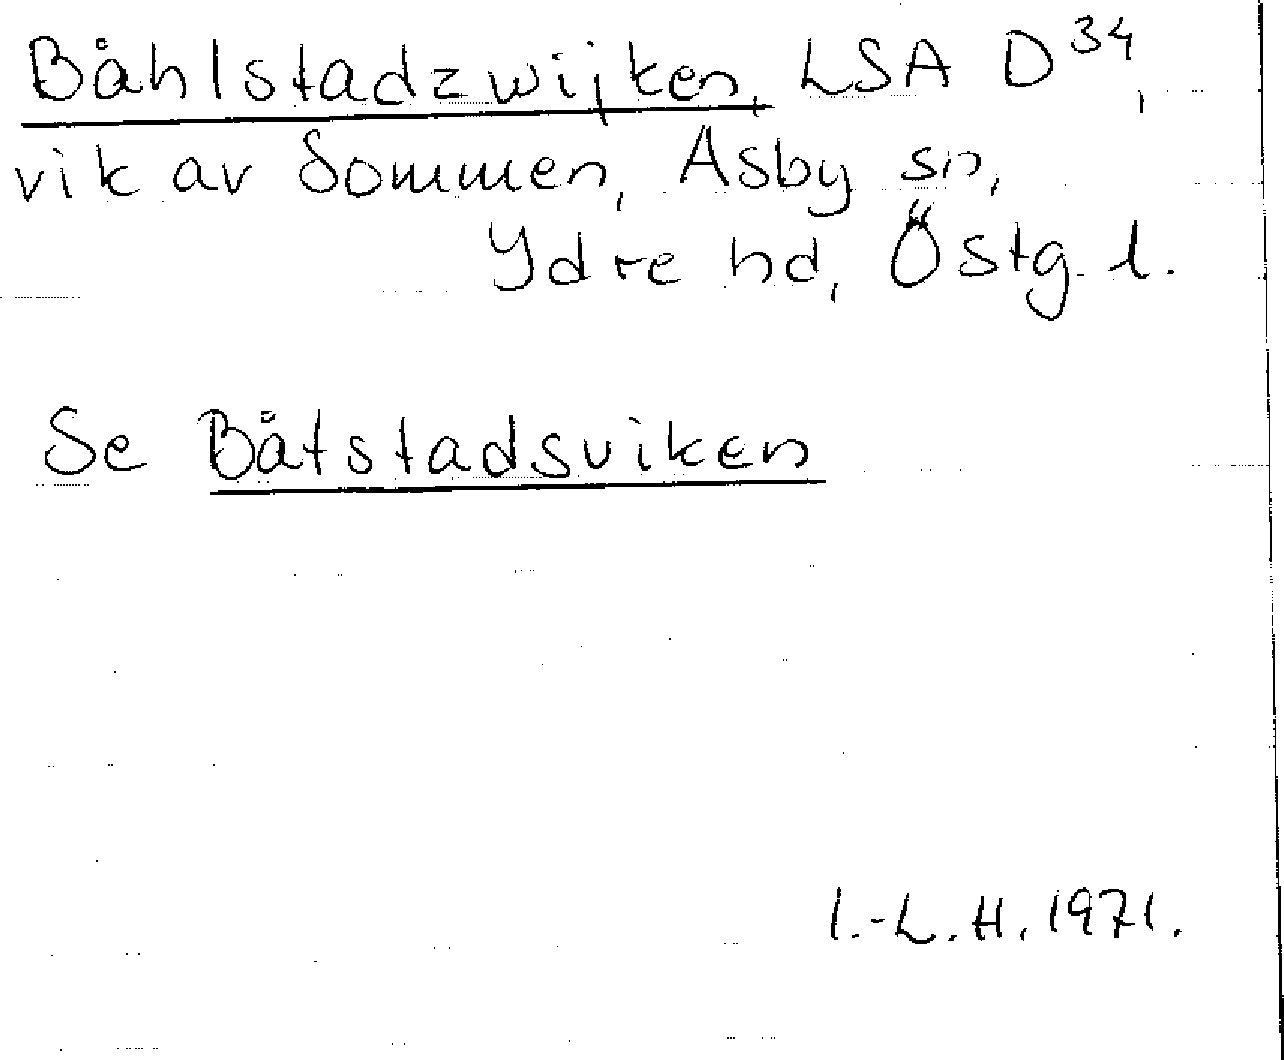 Båhlstadzwijken, LSA D³⁴,
vik av Sommen, Asby sn,
Ydre hd, Östg. l.
Se Båtstadsviken
I.-L. H. 1971.